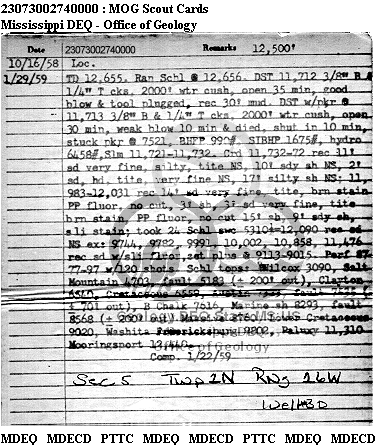 23073002740000 : MOG Scout Cards
Mississippi DEQ - Office of Geology
Date 23073002740000 Remarks 12,500'
10/16/58 Loc.
1/29/59 TD 12,655. Ran Schl @ 12,656. DST 11,712 3/8" B &
1/4" T cks, 2000' wtr cush, open 35 min, good
blow & tool plugged, rec 30' mud. DST w/pkr @
11,713 3/8" B & 1/4" T cks, 2000' wtr cush, open
30 min, weak blow 10 min & died, shut in 10 min,
stuck pkr @ 7521, BHFP 990#, SIBHP 1675#, hydro
6458#, Slm 11,721-11,732. Crd 11,732-72 rec 31'
sd very fine, silty, tite, NS, 10' sdy sh NS, 2'
sd, hd, tite, very fine NS, 17' silty sh NS; 11,
983-12,031 rec 14' sd very fine, tite, brn stain
PP fluor, no cut, 3' sh, 3' sd very fine, tite
brn stain, PP fluor, no cut 15' sh, 9' sdy sh,
sli stain; took 24 Schl swc 5310-12,090 rec sd
NS ex: 9744, 9782, 9991, 10,002, 10,858, 11,476
rec sd w/sli fluor, set plug @ 9113-9015. Perf
77-97 w/120 shots. Schl tops: Wilcox 3090, Salt
Mountain 4703, fault 5183 (± 200' out), Clayton
Cretaceous fault
out), B Chalk 7616, Marine sh 8293, fault
8568 (± 200' out) Cretaceous
9020, Washita Fredericksburg 9802, Paluxy 11,310
Mooringsport
Comp. 1/22/59
Office of Geology
Sec. 5 Twp 2N Rng 16W
MDEQ MDECD PTTC MDEQ MDECD PTTC MDEQ MDECD PTTC MDEQ